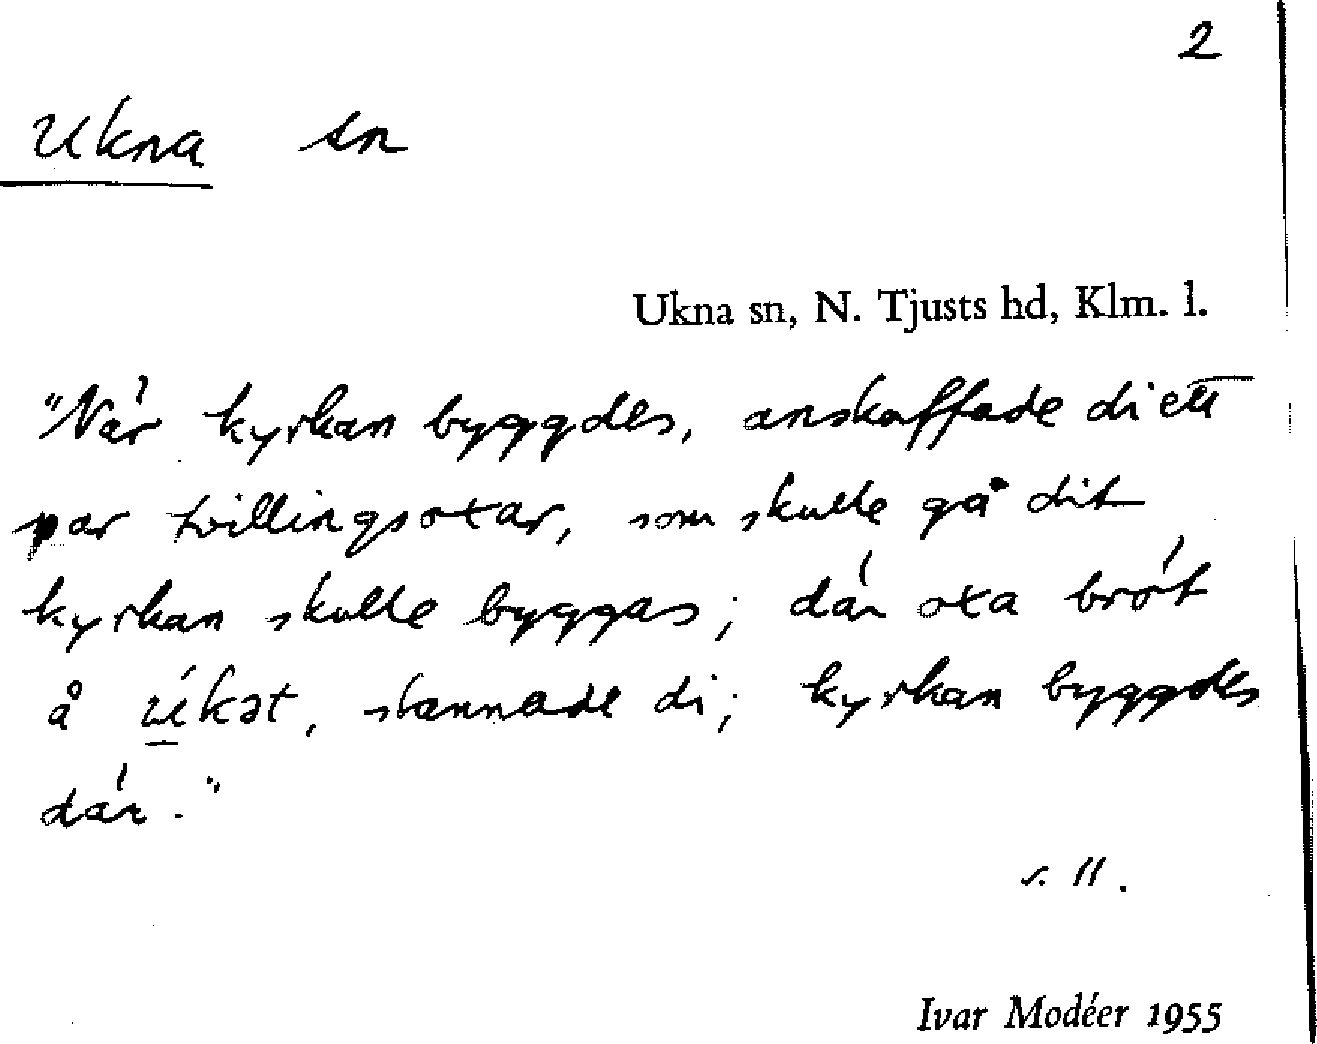 2
Ukna sn
Ukna sn, N. Tjusts hd, Klm. l.
"När kyrkan byggdes, anskaffade di ett
par tvillingsoxar, som skulle gå dit
kyrkan skulle byggas; där oxa bröt
å úkət, stannade di; kyrkan byggdes
där."
s. 11.
Ivar Modéer 1955